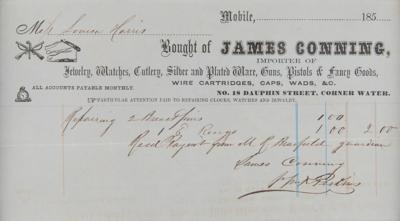 Mobile, 185
Miss Louisa Harris
Bought of JAMES CONNING,
IMPORTER OF
Jewelry, Watches, Cutlery, Silver and Plated Ware, Guns, Pistols & Fancy Goods,
WIRE CARTRIDGES, CAPS, WADS, &C.
ALL ACCOUNTS PAYABLE MONTHLY.
NO. 18 DAUPHIN STREET, CORNER WATER.
PARTICULAR ATTENTION PAID TO REPAIRING CLOCKS, WATCHES AND JEWELRY.
Repairing 2 Breast pins 1 00
1 E Rings 1 00 2 00
Recd Payment from M. R. guardian
James Conning